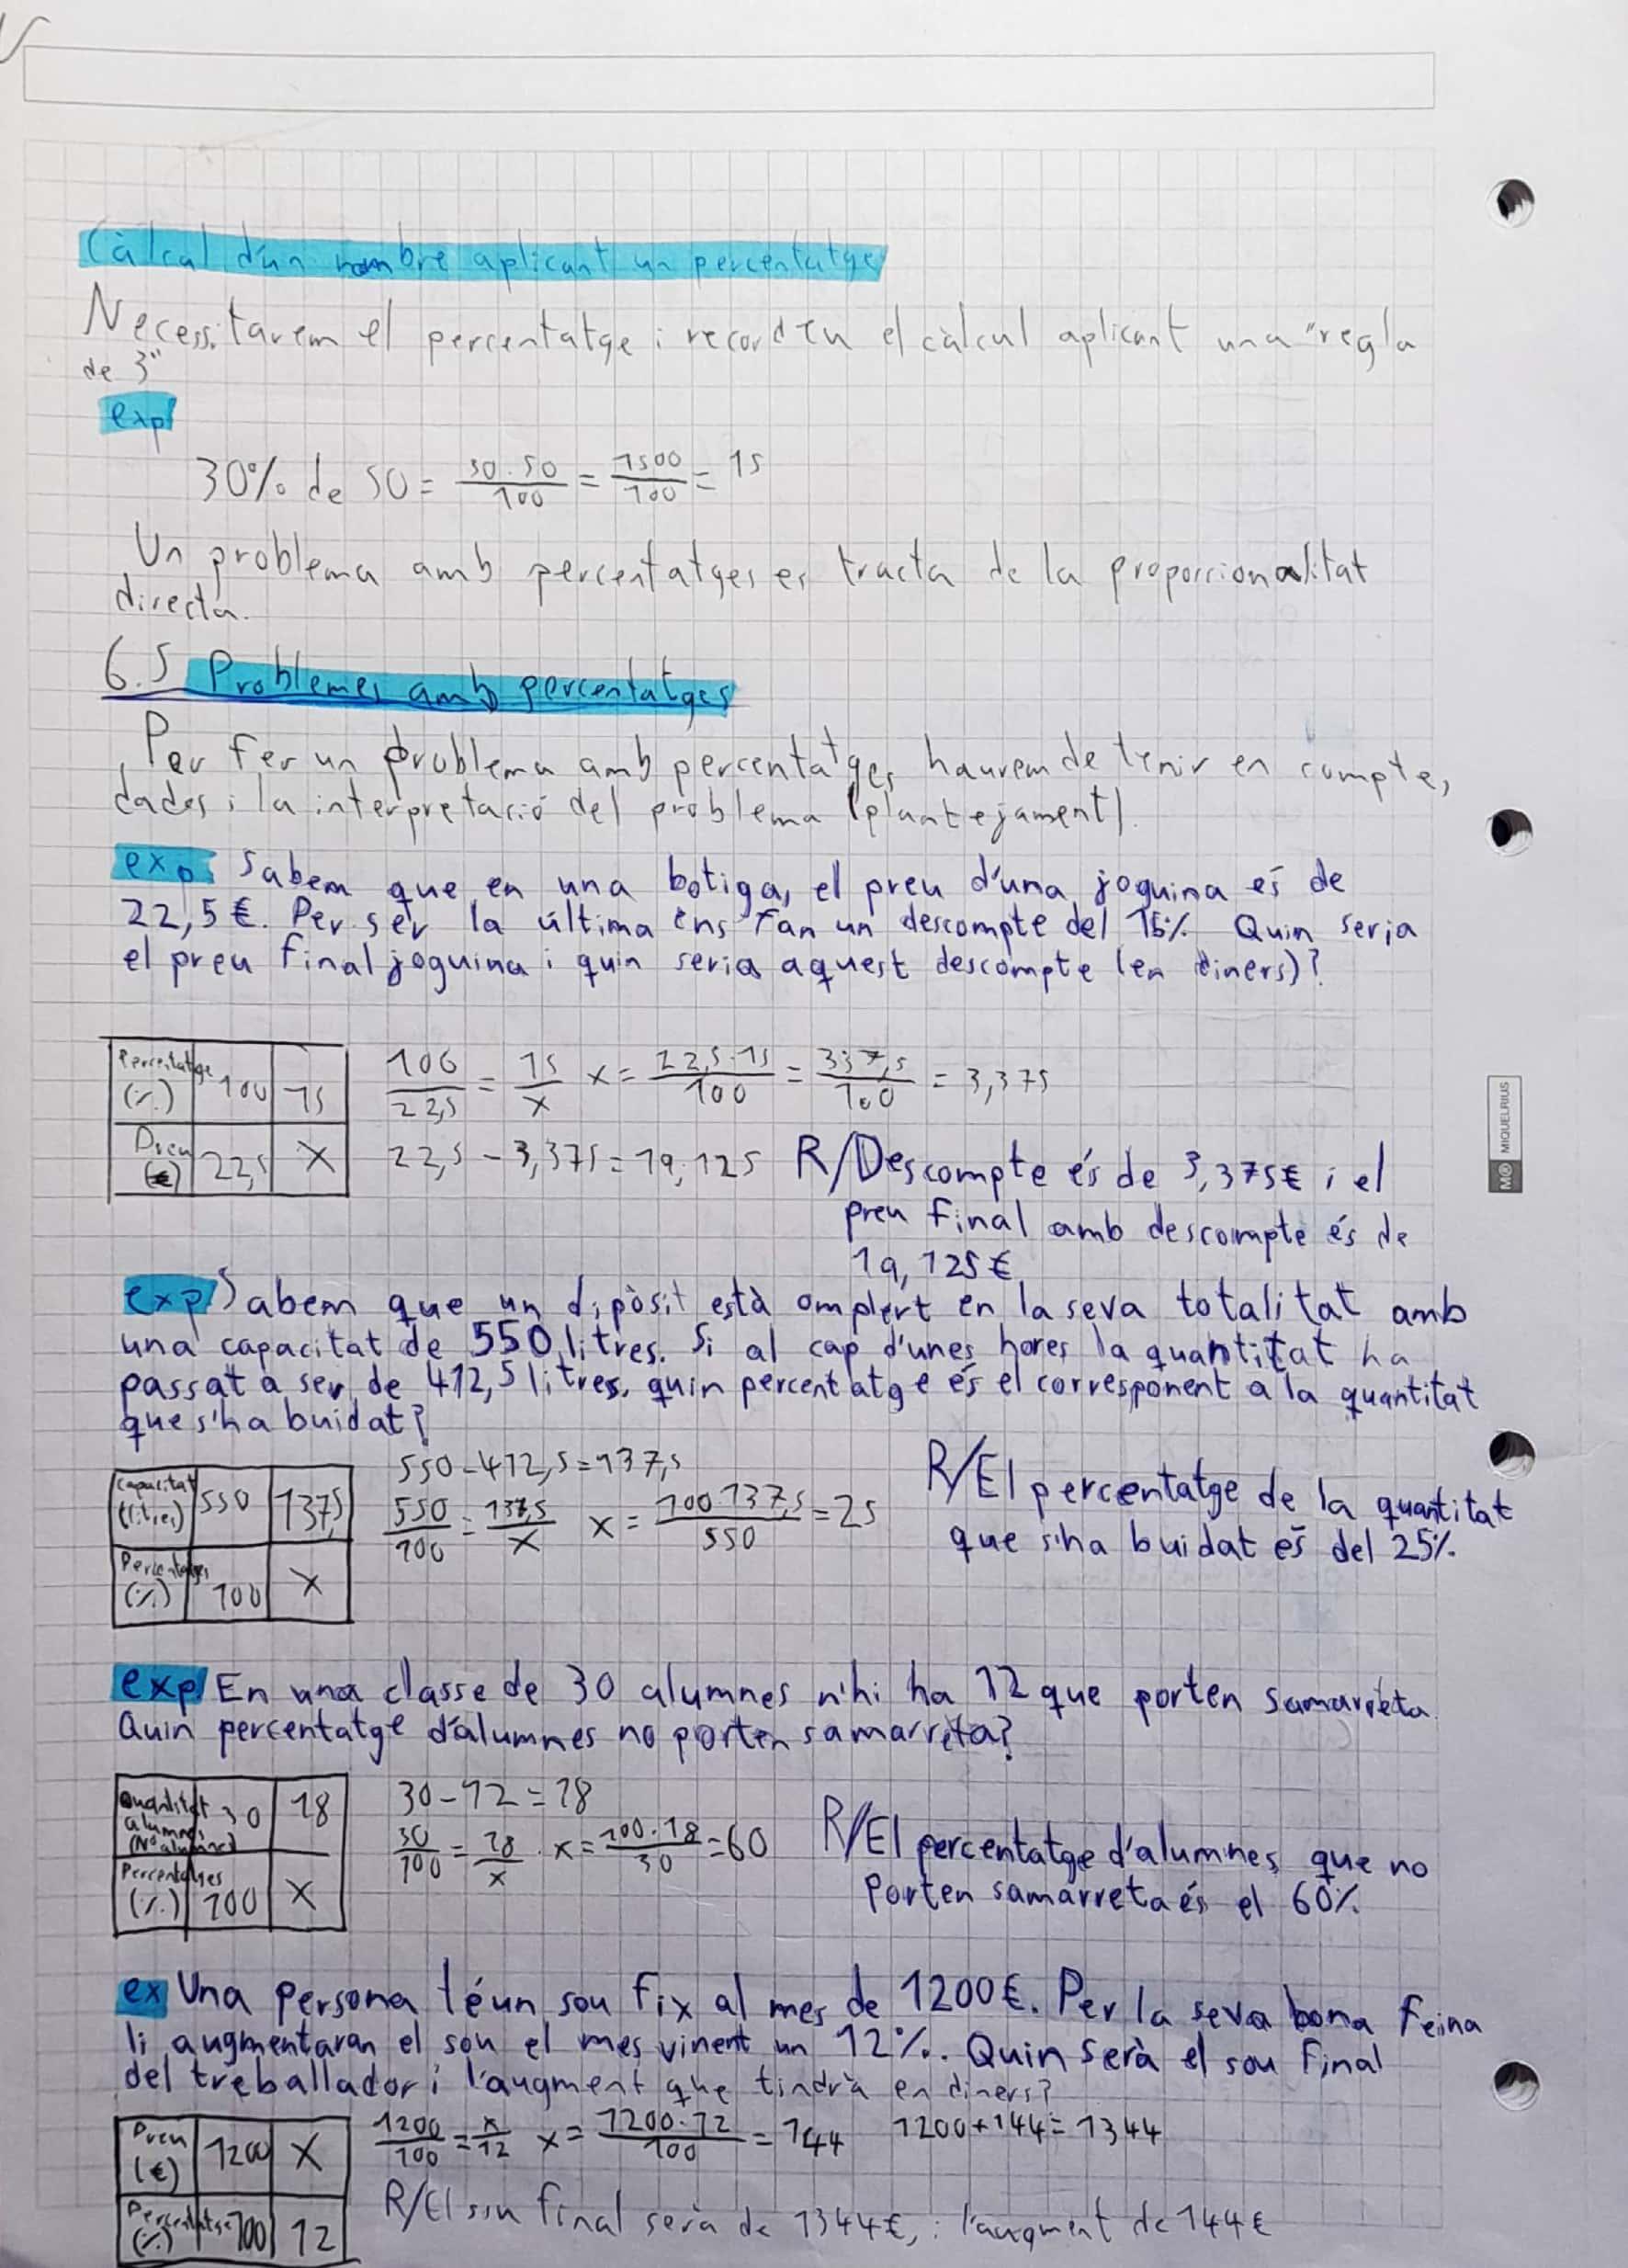 Càlcul d'un nombre aplicant un percentatge
Necessitarem el percentatge i recorden el càlcul aplicant una "regla
de 3"
exp
30% de 50 = 30·50/100 = 1500/100 = 15
Un problema amb percentatges es tracta de la proporcionalitat
directa.
6.5 Problemes amb percentatges
Per fer un problema amb percentatges haurem de tenir en compte,
dades i la interpretació del problema (plantejament).
exp Sabem que en una botiga, el preu d'una joguina és de
22,5€. Per ser la última ens fan un descompte del 15%. Quin seria
el preu final joguina i quin seria aquest descompte (en diners)?
Percentatge (%) 100 15
Preu (€) 22,5 X
100/22,5 = 15/x x = 22,5·15/100 = 337,5/100 = 3,375
22,5 - 3,375 = 19,125
R/Descompte és de 3,375€ i el
preu final amb descompte és de
19,125€
exp Sabem que un dipòsit està omplert en la seva totalitat amb
una capacitat de 550 litres. Si al cap d'unes hores la quantitat ha
passat a ser de 412,5 litres, quin percentatge és el corresponent a la quantitat
que s'ha buidat?
Capacitat (litres) 550 137,5
Percentatges (%) 100 X
550-412,5=137,5
550/100 = 137,5/x x = 100·137,5/550 = 25
R/El percentatge de la quantitat
que s'ha buidat és del 25%.
exp En una classe de 30 alumnes n'hi ha 12 que porten samarreta.
Quin percentatge d'alumnes no porten samarreta?
Quantitat alumnes (Nº alumnes) 30 18
Percentatges (%) 100 X
30-12=18
30/100 = 18/x . x = 100·18/30 = 60
R/El percentatge d'alumnes que no
Porten samarreta és el 60%.
ex Una persona té un sou fix al mes de 1200€. Per la seva bona feina
li augmentaran el sou el mes vinent un 12%. Quin serà el sou final
del treballador i l'augment que tindrà en diners?
Preu (€) 1200 X
Percentatge (%) 100 12
1200/100 = x/12 x = 1200·12/100 = 144 1200+144=1344
R/El sou final serà de 1344€, i l'augment de 144€
MR MIQUELRIUS